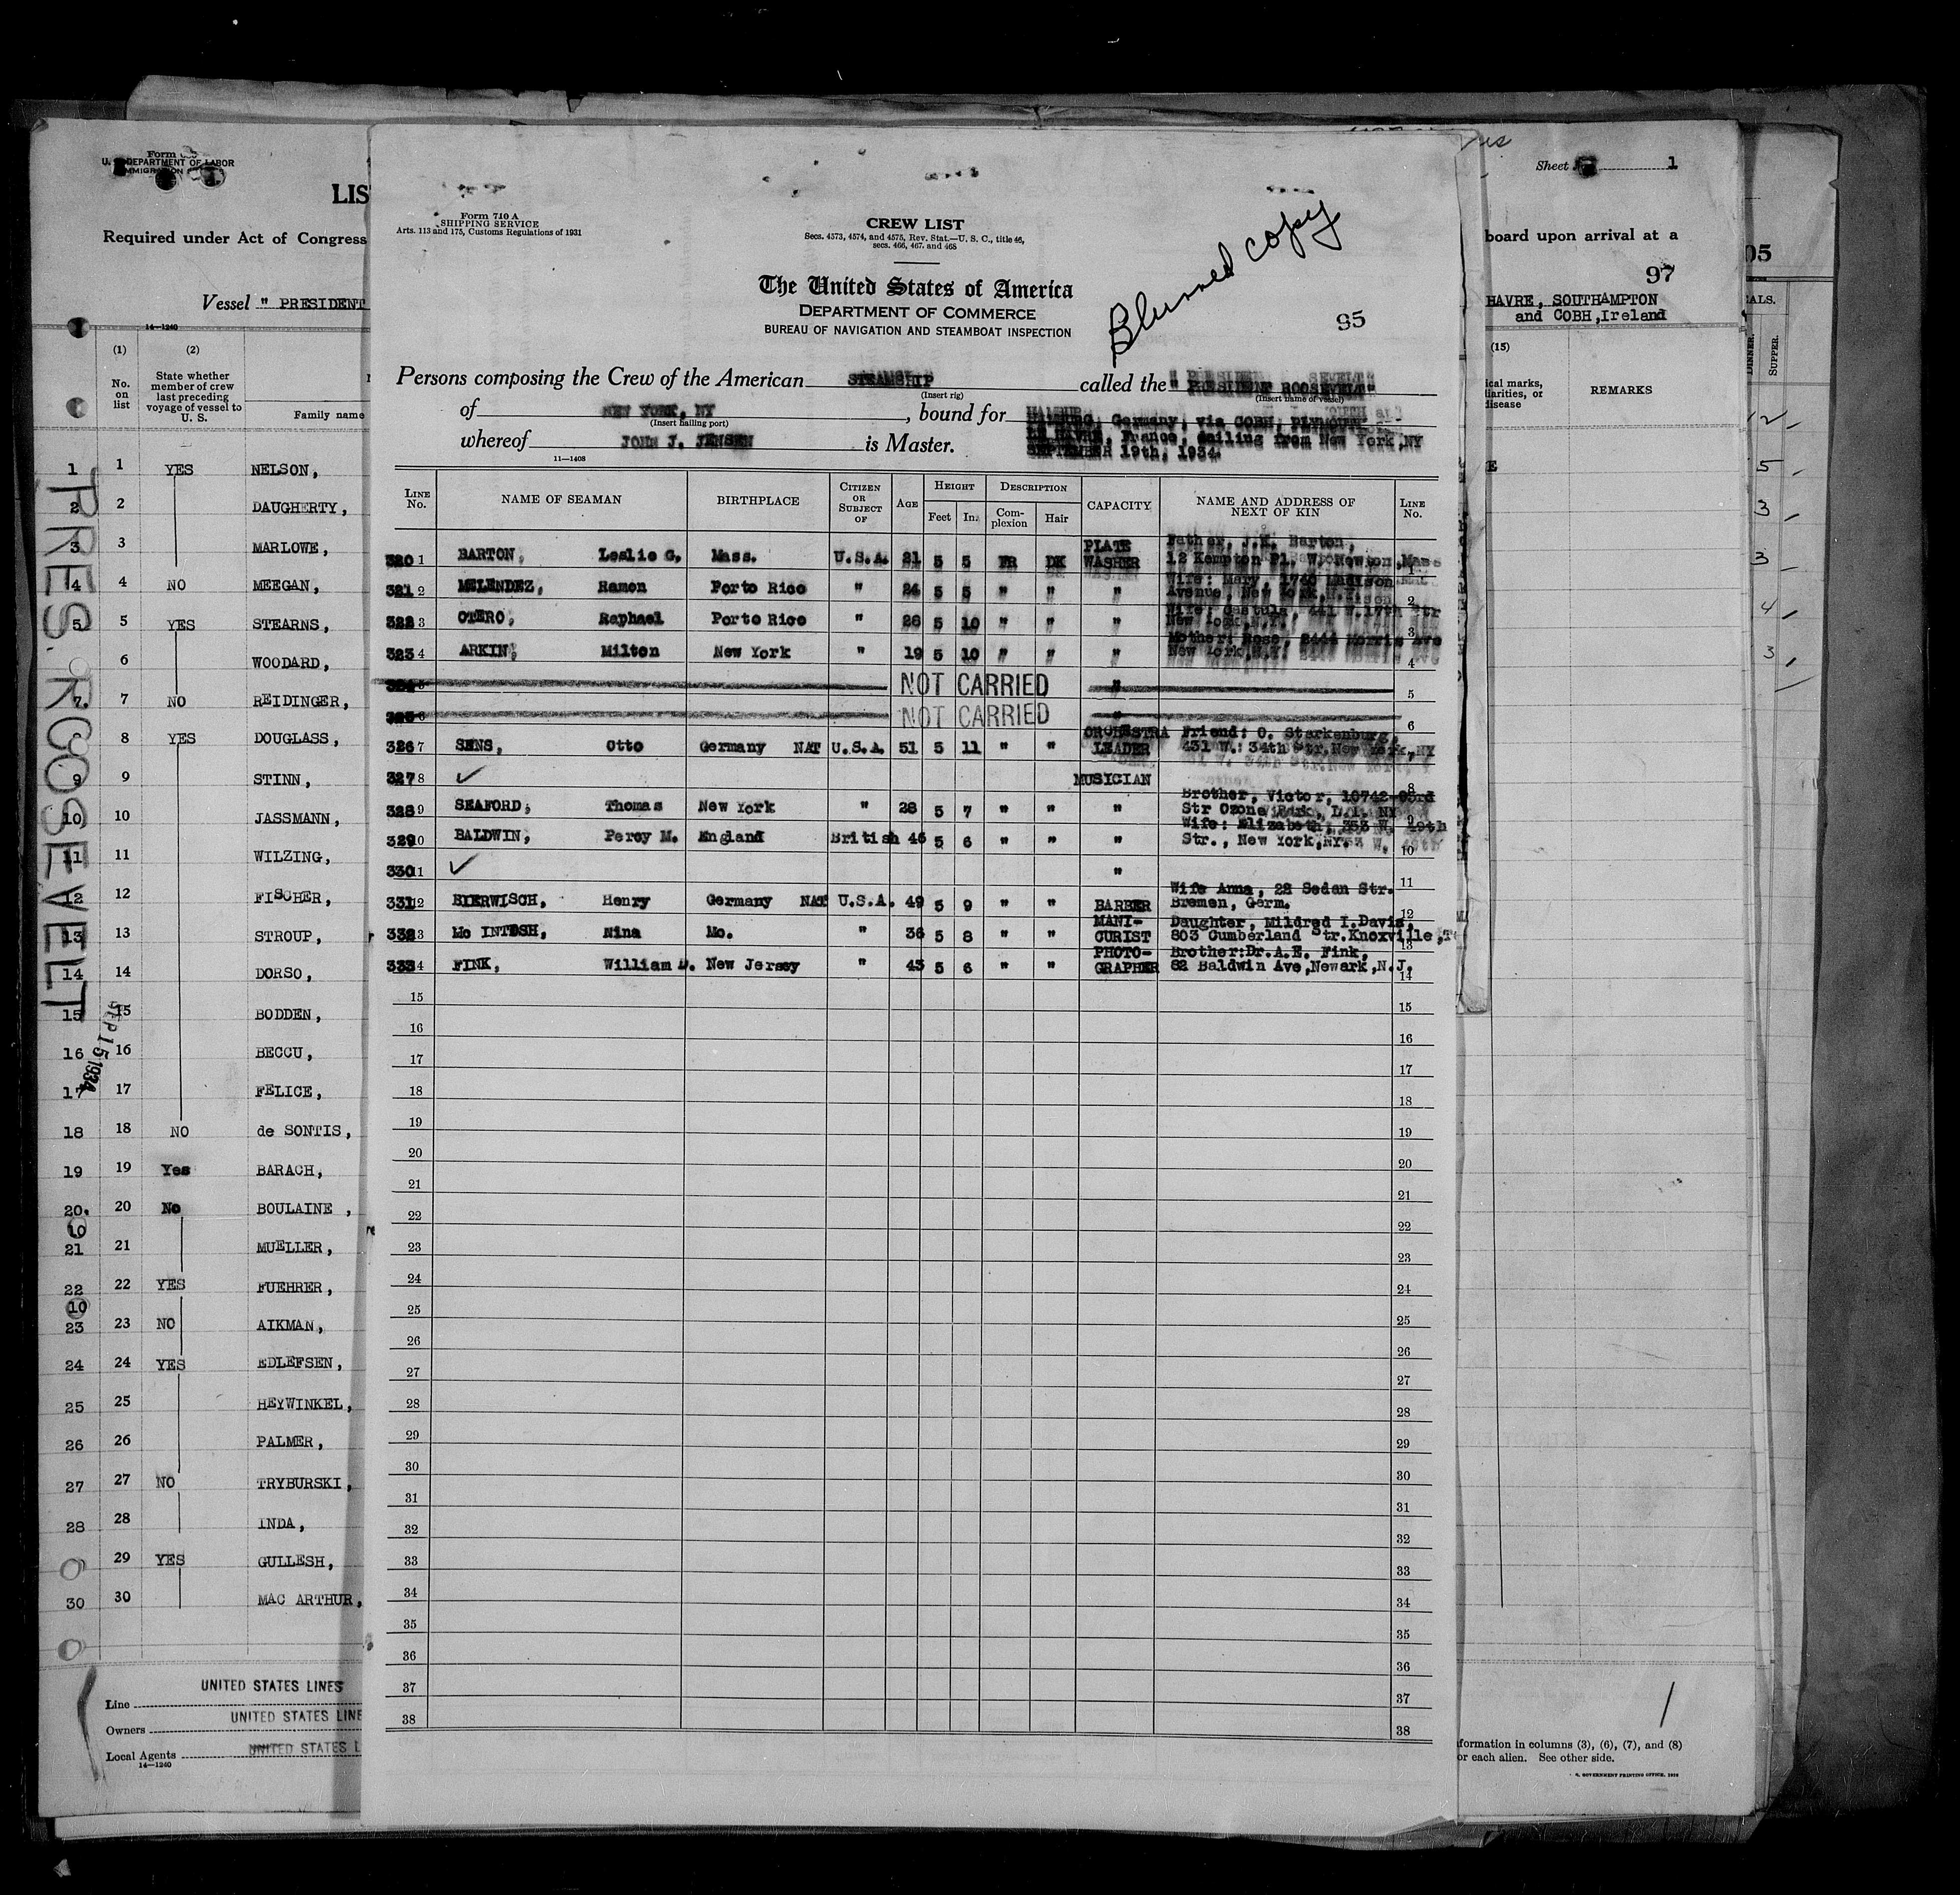 Form
U. S. DEPARTMENT OF LABOR
IMMIGRATION
LIS
Required under Act of Congress
Vessel " PRESIDENT
14—1240
(1) (2)
No. on list
State whether member of crew last preceding voyage of vessel to U. S.
Family name
1 1 YES NELSON,
2 2 DAUGHERTY,
3 3 MARLOWE,
4 4 NO MEEGAN,
5 5 YES STEARNS,
6 WOODARD,
7 7 NO REIDINGER,
8 YES DOUGLASS,
9 9 STINN,
10 10 JASSMANN,
11 11 WILZING,
12 12 FISCHER,
13 13 STROUP,
14 14 DORSO,
15 15 BODDEN,
16 16 BECCU,
17 17 FELICE,
18 18 NO de SONTIS,
19 19 Yes BARACH,
20. 20 No BOULAINE ,
10
21 21 MUELLER,
22 22 YES FUEHRER,
10
23 23 NO AIKMAN,
24 24 YES EDLEFSEN,
25 25 HEYWINKEL,
26 26 PALMER,
27 27 NO TRYBURSKI,
28 28 INDA,
29 YES GULLESH,
30 30 MAC ARTHUR,
PRES. ROOSEVELT
SEP 15 1934
Line UNITED STATES LINES
Owners UNITED STATES LINE
Local Agents UNITED STATES L
14—1240
Form 710 A
SHIPPING SERVICE
Arts. 113 and 175, Customs Regulations of 1931
CREW LIST
Secs. 4573, 4574, and 4575, Rev. Stat.—U. S. C., title 46,
secs. 466, 467, and 468
The United States of America
DEPARTMENT OF COMMERCE
BUREAU OF NAVIGATION AND STEAMBOAT INSPECTION
Blurred copy
95
Persons composing the Crew of the American STEAMSHIP called the "PRESIDENT ROOSEVELT"
(Insert rig) (Insert name of vessel)
of NEW YORK, NY , bound for HAMBURG, Germany, via COBH, PLYMOUTH
(Insert hailing port)
whereof JOHN J. JENSEN is Master. LE HAVRE, France, sailing from New York,NY
SEPTEMBER 19th, 1934.
11—1408
LINE No. NAME OF SEAMAN BIRTHPLACE CITIZEN OR SUBJECT OF AGE HEIGHT Feet In. DESCRIPTION Complexion Hair CAPACITY NAME AND ADDRESS OF NEXT OF KIN LINE No.
320 1 BARTON, Leslie G. Mass. U.S.A. 21 5 5 FR DK PLATE WASHER Father, J.K. Barton, 12 Kempton Pl. W. Newton,Mass 1
321 2 MELENDEZ, Ramon Porto Rico " 24 5 5 " " " Wife: Mary, 1740 Madison Avenue, New York,N.Y. 2
322 3 OTERO, Raphael Porto Rico " 26 5 10 " " " Wife; Castula, 441 W.17th Str New York,N.Y. 3
323 4 ARKIN, Milton New York " 19 5 10 " " " Mother: Rose, 2444 Morris Ave New York,N.Y. 4
324 5 NOT CARRIED " 5
325 6 NOT CARRIED " 6
326 7 SENS, Otto Germany NAT U.S.A. 51 5 11 " " ORCHESTRA LEADER Friend: O. Sterkenburg, 431 W. 34th Str.New York,NY 7
327 8 ✓ MUSICIAN 8
328 9 SEAFORD, Thomas New York " 28 5 7 " " " Brother, Victor, 10742-93rd Str Ozone Park, L.I. NY 9
329 10 BALDWIN, Percy M. England British 46 5 6 " " " Wife: Elizabeth, 353 W. 49th Str., New York,NY. 10
330 11 ✓ " 11
331 12 BIERWISCH, Henry Germany NAT U.S.A. 49 5 9 " " BARBER Wife Anna, 22 Sedan Str. Bremen, Germ. 12
332 13 Mc INTOSH, Nina Mo. " 36 5 8 " " MANI-CURIST Daughter, Mildred I.Davis, 803 Cumberland Str.Knoxville,T 13
333 14 FINK, William D. New Jersey " 43 5 6 " " PHOTO-GRAPHER Brother:Dr.A.E. Fink, 82 Baldwin Ave,Newark,N.J. 14
15 15
16 16
17 17
18 18
19 19
20 20
21 21
22 22
23 23
24 24
25 25
26 26
27 27
28 28
29 29
30 30
31 31
32 32
33 33
34 34
35 35
36 36
37 37
38 38
Sheet 1
board upon arrival at a
97
HAVRE, SOUTHAMPTON
and COBH,Ireland
(15)
ical marks,
liarities, or
disease
REMARKS
E
formation in columns (3), (6), (7), and (8)
or each alien. See other side.
GOVERNMENT PRINTING OFFICE
05
ALS.
DINNER.
SUPPER.
2
5
3
3
4
3